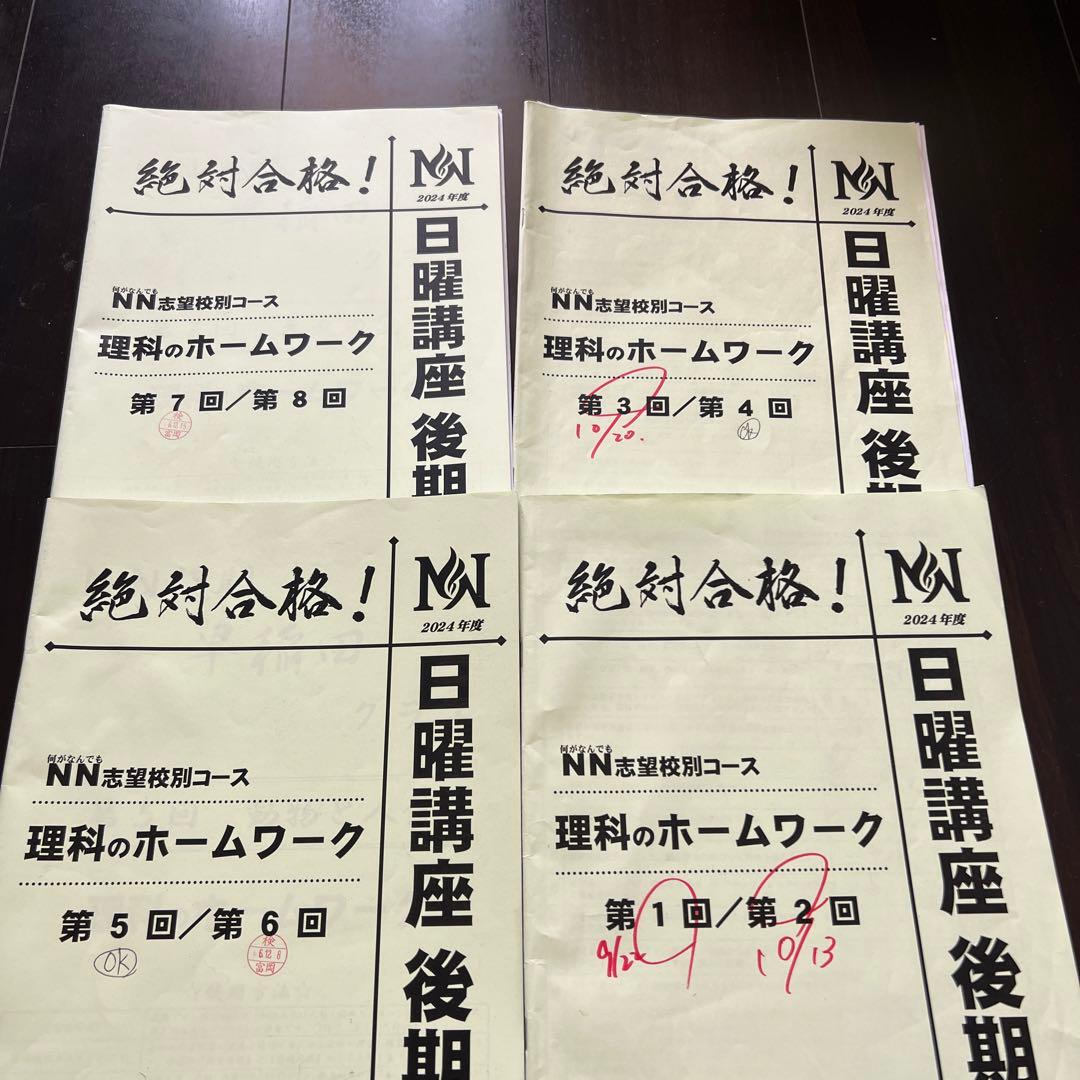 絶対合格!
NN
2024年度
日曜講座 後期
何がなんでも
NN志望校別コース
理科のホームワーク
第7回/第8回
検
富岡
絶対合格!
NN
2024年度
日曜講座 後期
何がなんでも
NN志望校別コース
理科のホームワーク
第3回/第4回
10/20.
絶対合格!
NN
2024年度
日曜講座 後期
何がなんでも
NN志望校別コース
理科のホームワーク
第5回/第6回
OK
検
6.12.8
富岡
絶対合格!
NN
2024年度
日曜講座 後期
何がなんでも
NN志望校別コース
理科のホームワーク
第1回/第2回
10/13